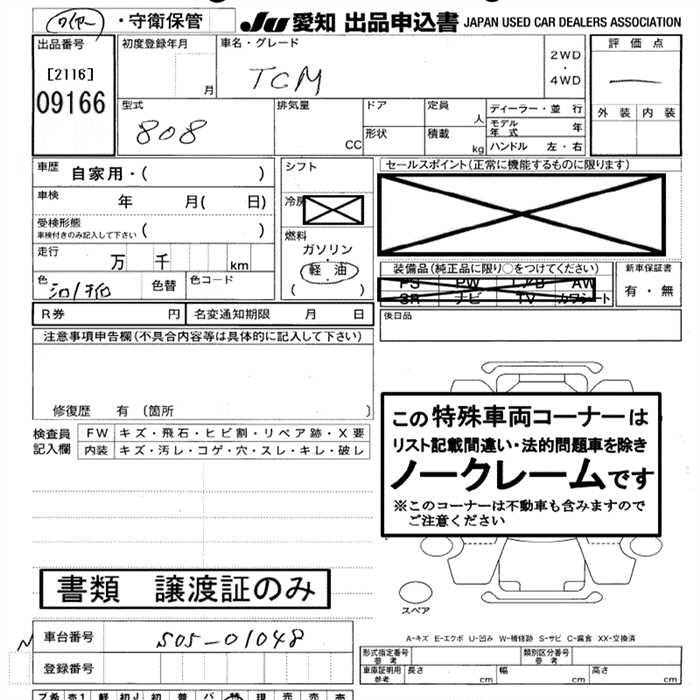 ・守衛保管 JU 愛知 出品申込書 JAPAN USED CAR DEALERS ASSOCIATION
出品番号 初度登録年月 車名・グレード 評価点
[2116] 月 TCM 2WD
・
4WD
09166
外装 内装
型式 排気量 ドア 定員 ディーラー・並行
808 人 モデル年式 年
CC 形状 積載 kg ハンドル 左・右
車歴 自家用・( ) シフト セールスポイント(正常に機能するものに限ります)
車検 年 月( 日) 冷房
受検形態
車検付きのみ記入して下さい ( ) 燃料
ガソリン・
走行 万 千 km 軽・油
( )
装備品(純正品に限り○をつけてください) 新車保証書
色 色替 色コード PS PW エアB AW 有・無
SR ナビ TV カワシート
R券 円 名変通知期限 月 日 後日品
注意事項申告欄(不具合内容等は具体的に記入して下さい)
修復歴 有(箇所 )
検査員記入欄 FW キズ・飛石・ヒビ割・リペア跡・X要
内装 キズ・汚レ・コゲ・穴・スレ・キレ・破レ
この特殊車両コーナーは
リスト記載間違い・法的問題車を除き
ノークレームです
※このコーナーは不動車も含みますので
ご注意ください
書類 譲渡証のみ
スペア
車台番号 S05-01048
A-キズ E-エクボ U-凹み W-補修跡 S-サビ C-腐食 XX-交換済
登録番号
形式指定番号 参考 類別区分番号 参考
車庫証明用 参考 長さ cm 幅 cm 高さ cm